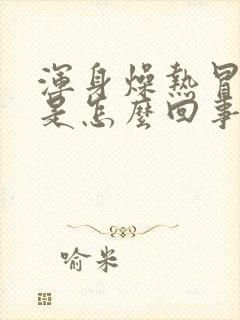 渾身燥熱冒
是怎麼回事
喻米